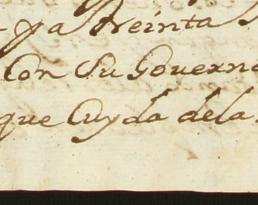 ya treinta
Con Su Governa
que Cuyda dela